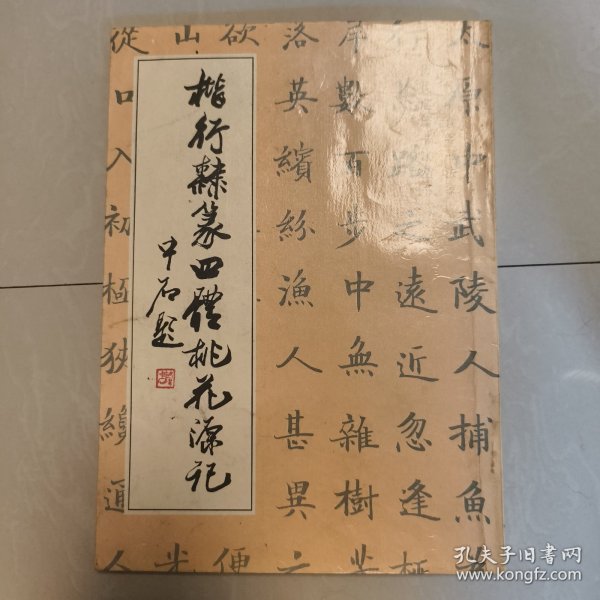 楷行隸篆四體桃花源記
中石題
太原中武陵人捕魚
遠近忽逢
岸數百步中無雜樹
洛英繽紛漁人甚異
欲
便
山
從口入初極狹纔通人
孔夫子旧书网
www.kongfz.com